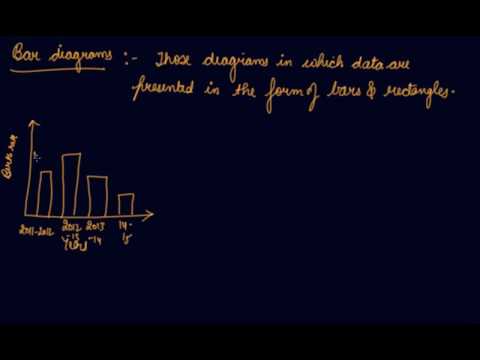 Bar diagrams :- Those diagrams in which data are
presented in the form of bars & rectangles.
Birth rate
2011-2012 2012 2013 14-
-13 -14 15
Years